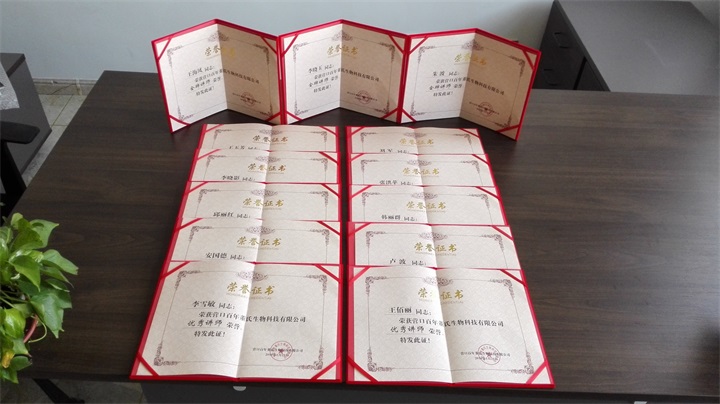 荣誉证书
王海凤 同志:
荣获营口百年
生物科技有限公司
金牌讲师 荣誉
特发此证!
荣誉证书
李晓玉 同志:
荣获营口百年
生物科技有限公司
金牌讲师 荣誉
特发此证!
荣誉证书
波 同志:
荣获营口百年
氏生物科技有限公司
金牌讲师 荣誉
特发此证!
荣誉证书
同志:
荣誉证书
军 同志:
荣誉证书
李晓彩 同志:
荣誉证书
张洪革 同志:
荣誉证书
邱丽红 同志:
荣誉证书
韩丽群 同志:
荣誉证书
安国德 同志:
荣誉证书
卢 波 同志:
荣誉证书
李雪敏 同志:
荣获营口百年
氏生物科技有限公司
优秀讲师 荣誉
特发此证!
荣誉证书
王佰丽 同志:
荣获营口百年
氏生物科技有限公司
优秀讲师 荣誉
特发此证!